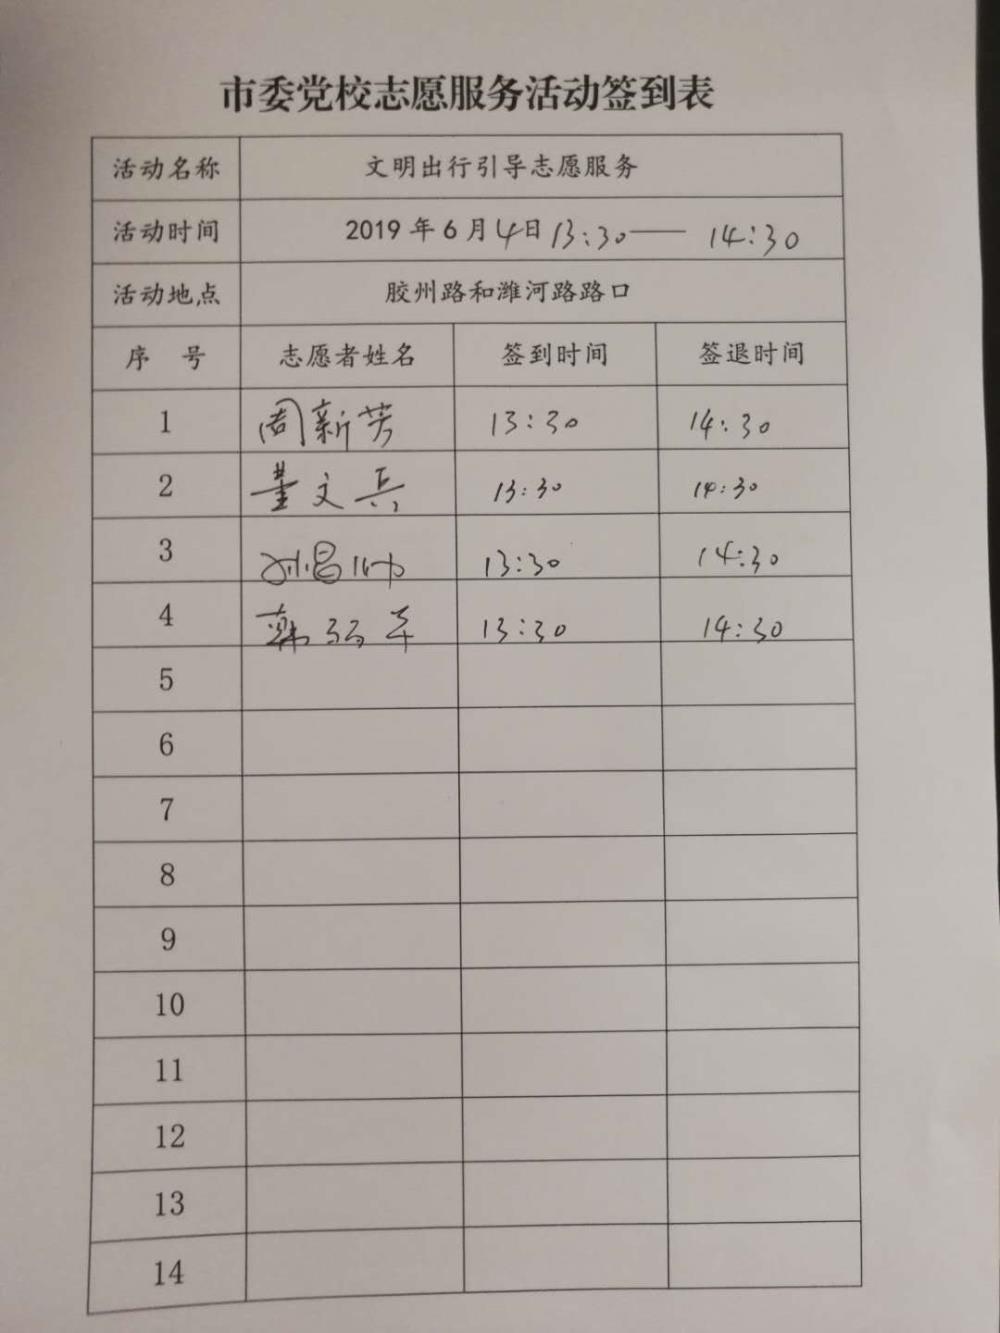 市委党校志愿服务活动签到表
活动名称 文明出行引导志愿服务
活动时间 2019年6月4日13:30—— 14:30
活动地点 胶州路和潍河路路口
序 号 志愿者姓名 签到时间 签退时间
1 周新芳 13:30 14:30
2 董文兵 13:30 14:30
3 孙昌帅 13:30 14:30
4 韩 13:30 14:30
5
6
7
8
9
10
11
12
13
14